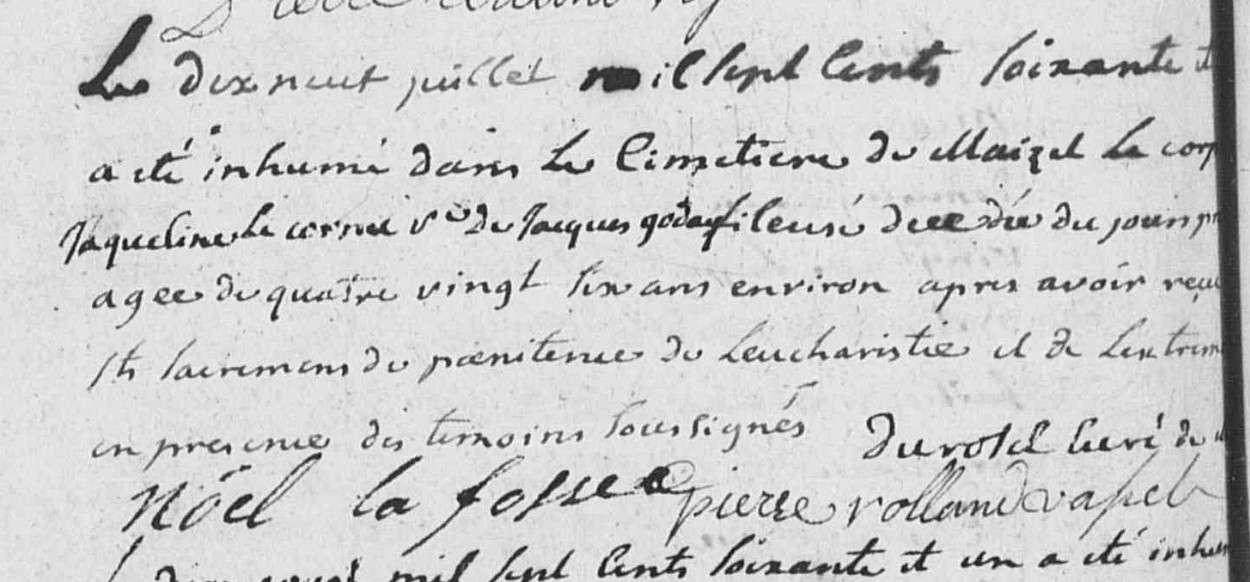 Le dix neuf juillet mil sept Cents soixante et
a eté inhumé dans le Cimetiere de Maizet le corp
Jaqueline le cornu vᵉ de Jacques goday fileuse du jour
agee de quatre vingt six ans environ apres avoir reçu
sts sacremens de pœnitence de Leucharistie et de Lextrem
en presence des temoins soussignés durosel Curé de
Nöel la fosse pierre rolland vassel
mil sept Cents soixante et un a eté inhu